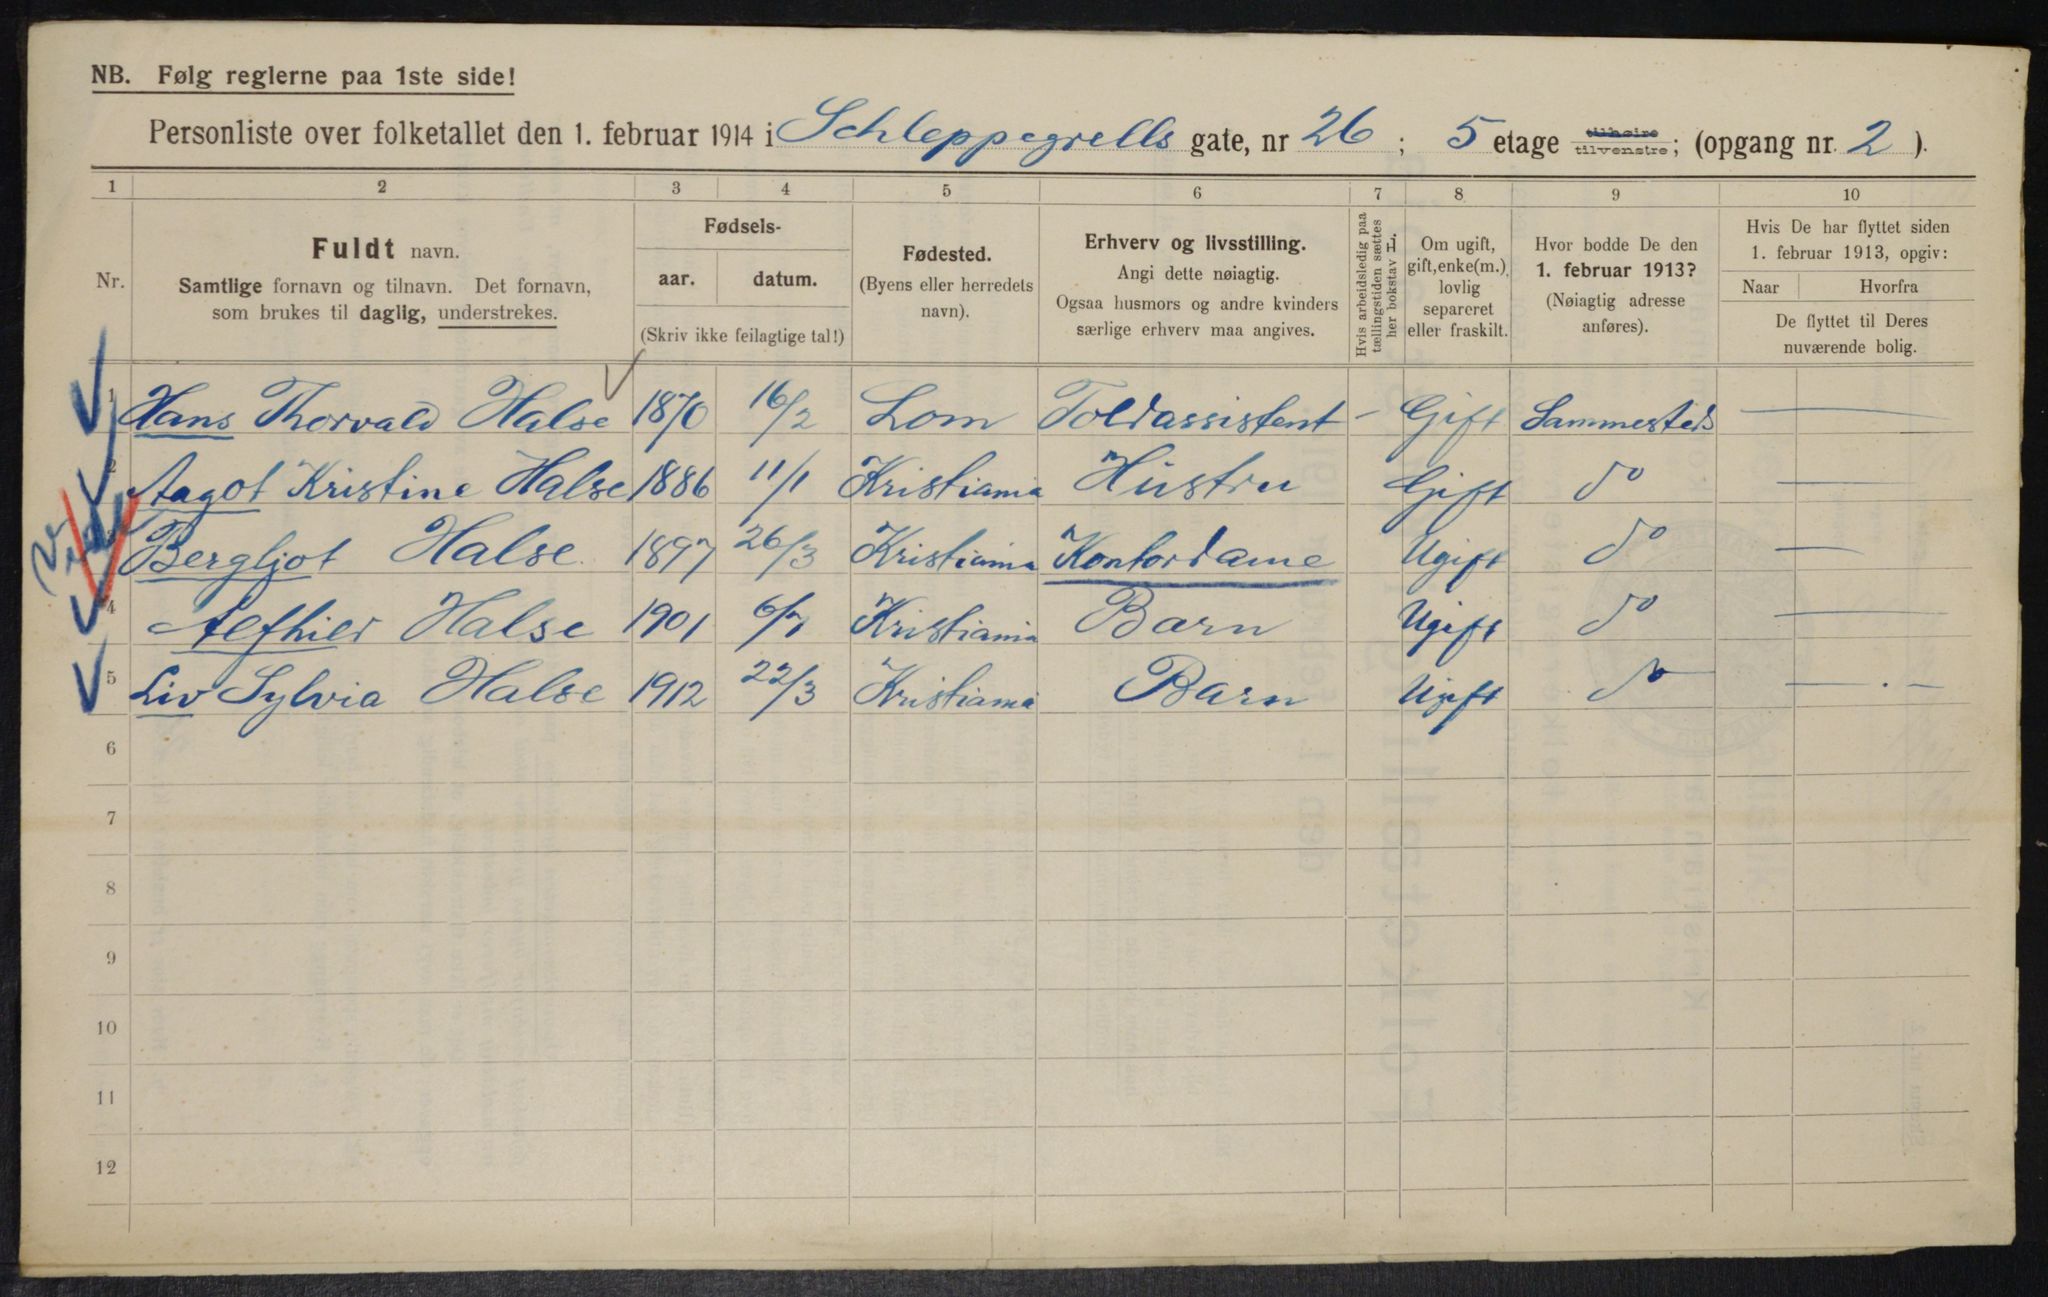 NB. Følg reglerne paa 1ste side!
Personliste over folketallet den 1. februar 1914 i Schleppegrells gate, nr 26; 5 etage tilhøire / tilvenstre; (opgang nr. 2).
1 2 3 4 5 6 7 8 9 10
Nr.
Fuldt navn.
Samtlige fornavn og tilnavn. Det fornavn,
som brukes til daglig, understrekes.
Fødsels-
aar. datum.
(Skriv ikke feilagtige tal!)
Fødested.
(Byens eller herredets
navn).
Erhverv og livsstilling.
Angi dette nøiagtig.
Ogsaa husmors og andre kvinders
særlige erhverv maa angives.
Hvis arbeidsledig paa
tællingstiden sættes
her bokstav L.
Om ugift,
gift, enke(m.),
lovlig
separeret
eller fraskilt.
Hvor bodde De den
1. februar 1913?
(Nøiagtig adresse
anføres).
Hvis De har flyttet siden
1. februar 1913, opgiv:
Naar Hvorfra
De flyttet til Deres
nuværende bolig.
1 Hans Thorvald Halse 1870 16/2 Lom Toldassistent - Gift Sammesteds —
2 Aagot Kristine Halse 1886 11/1 Kristiania Hustru Gift do —
3 Bergljot Halse 1897 26/3 Kristiania Kontordame Ugift do —
4 Alfhild Halse 1901 6/7 Kristiania Barn Ugift do —
5 Liv Sylvia Halse 1912 22/3 Kristiania Barn Ugift do —·—
6
7
8
9
10
11
12